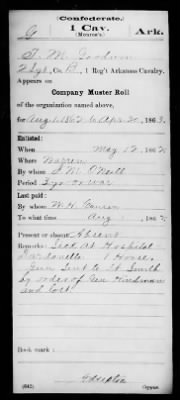 (Confederate.)
G 1 Cav. Ark.
(Monroe's)
T. M. Goodwin
2 Sgt, Co. B, 1 Reg't Arkansas Cavalry.
Appears on
Company Muster Roll
of the organization named above,
for Aug 1, 1862 to Apr 30, 1863.
Enlisted:
When May 12, 1862
Where Warren
By whom J. M. O'Neill
Period 3 yrs or war
Last paid:
By whom W. H.
To what time Aug 1, 1862
Present or absent Absent
Remarks: Sick at Hospital
Dardanelle 1 Horse.
Gun Sent to Ft Smith
by order of Gen Hindman
and Colt
Book mark:
(642) Copyist.